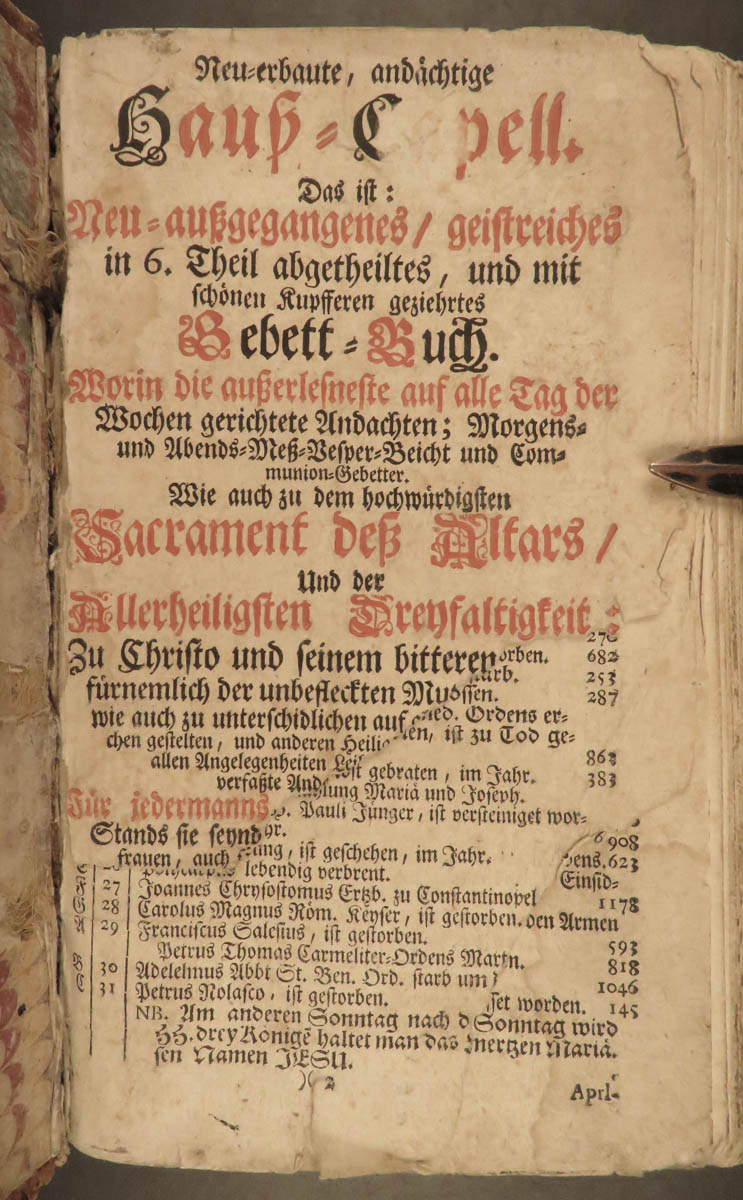 Neu-erbaute, andächtige
Hauß-C pell.
Das ist:
Neu-außgegangenes/ geistreiches
in 6. Theil abgetheiltes, und mit
schönen Kupfferen geziehrtes
Gebett-Buch.
Worin die außerlesneste auf alle Tag der
Wochen gerichtete Andachten; Morgens-
und Abends-Meß-Vesper-Beicht und Com-
munion-Gebetter.
Wie auch zu dem hochwürdigsten
Sacrament deß Altars/
Und der
Allerheiligsten Dreyfaltigkeit:
Zu Christo und seinem bitteren orben. 682
253
fürnemlich der unbefleckten Mu ssen. 287
wie auch zu unterschidlichen auf Ordens er-
chen gestelten, und anderen Heili en, ist zu Tod ge-
allen Angelegenheiten 863
gebraten, im Jahr. 383
verfaßte And lung Mariä und Joseph.
Für jedermanns Pauli Jünger, ist versteiniget wor-
Stands sie seynd 6908
frauen, auch ung, ist geschehen, im Jahr. bens. 623
lebendig verbrent. Einsid-
27 Joannes Chrysostomus Ertzb. zu Constantinopel 1178
G 28 Carolus Magnus Röm. Keyser, ist gestorben. den Armen
A 29 Franciscus Salesius, ist gestorben. 593
Petrus Thomas Carmeliter-Ordens Martn. 818
B 30 Adelelmus Abbt St. Ben. Ord. starb um 1046
C 31 Petrus Nolasco, ist gestorben. set worden. 145
NB. Am anderen Sonntag nach d Sonntag wird
HH. drey Könige haltet man das ertzen Mariä.
sen Namen JESU.
)( 2
Apri-